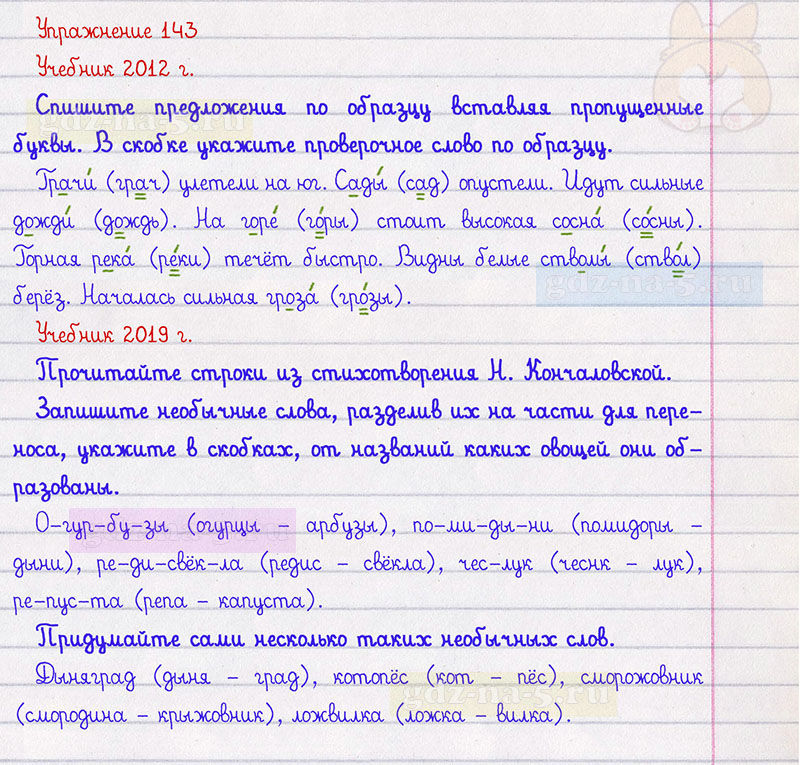 Упражнение 143
Учебник 2012 г.
Спишите предложения по образцу вставляя пропущенные
буквы. В скобке укажите проверочное слово по образцу.
Грачи́ (грач) улетели на юг. Сады́ (сад) опустели. Идут сильные
дожди́ (дождь). На горе́ (го́ры) стоит высокая сосна́ (со́сны).
Горная река́ (ре́ки) течёт быстро. Видны белые стволы́ (ство́л)
берёз. Началась сильная гроза́ (гро́зы).
Учебник 2019 г.
Прочитайте строки из стихотворения Н. Кончаловской.
Запишите необычные слова, разделив их на части для пере-
носа, укажите в скобках, от названий каких овощей они об-
разованы.
О-гур-бу-зы (огурцы - арбузы), по-ми-ды-ни (помидоры -
дыни), ре-ди-свёк-ла (редис - свёкла), чес-лук (чеснк - лук),
ре-пус-та (репа - капуста).
Придумайте сами несколько таких необычных слов.
Дыняград (дыня - град), котопёс (кот - пёс), сморожовник
(смородина - крыжовник), ложвилка (ложка - вилка).
gdz-na-5.ru
gdz-na-5.ru
gdz-na-5.ru
gdz-na-5.ru